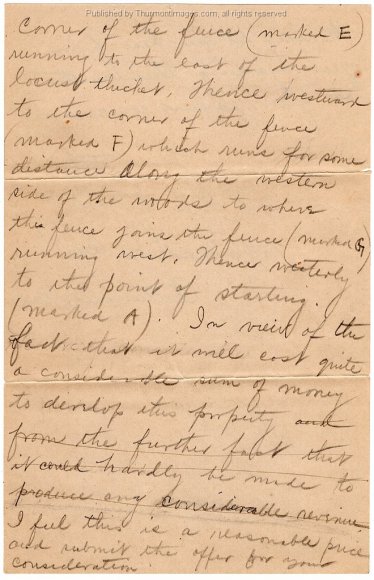 Published by Thurmontimages.com, all rights reserved
corner of the fence (marked E)
running to the east of the
locust thicket. Thence westward
to the corner of the fence
(marked F) which runs for some
distance along the western
side of the woods to where
this fence joins the fence (marked G)
running west. Thence westerly
to the point of starting.
(marked A). In view of the
fact that it will cost quite
a considerable sum of money
to develop this property and
from the further fact that
it could hardly be made to
produce any considerable revenue
I feel this is a reasonable price
and submit the offer for your
consideration.